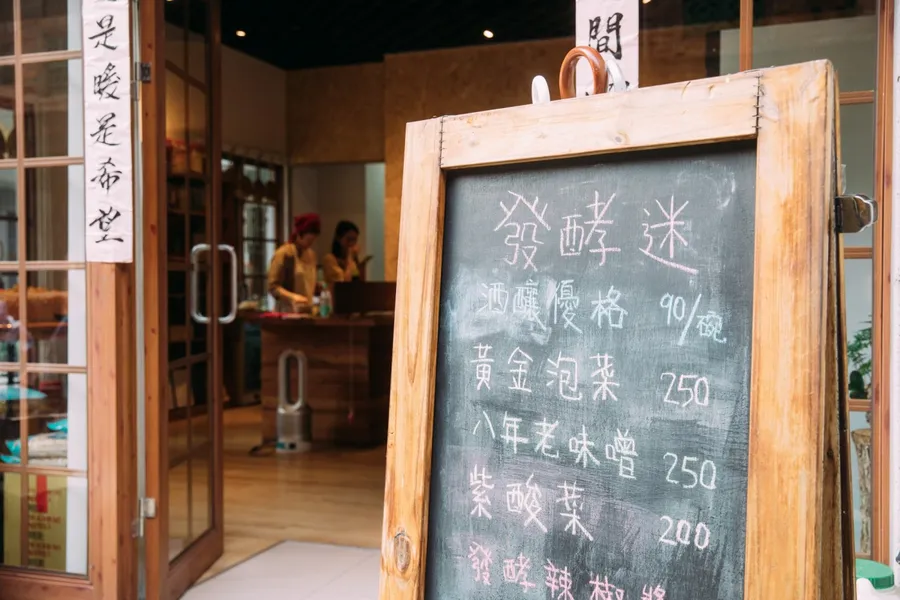 是暖是希望
間
發酵迷
酒釀優格 90/碗
黃金泡菜 250
八年老味噌 250
紫酸菜 200
發酵辣椒醬